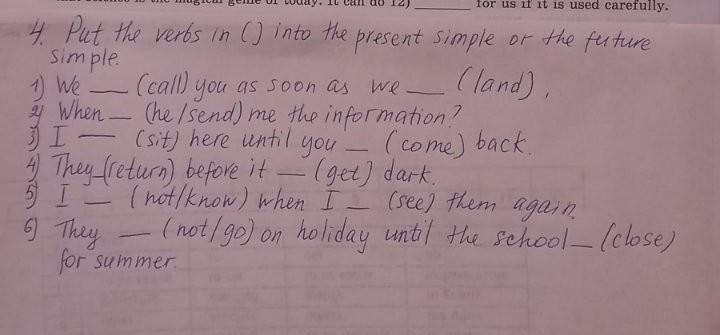 for us if it is used carefully.
4. Put the verbs in () into the present simple or the future
simple.
1) We __ (call) you as soon as we __ (land).
2) When __ (he/send) me the information?
3) I __ (sit) here until you __ (come) back.
4) They __ (return) before it __ (get) dark.
5) I __ (not/know) when I __ (see) them again.
6) They __ (not/go) on holiday until the school __ (close)
for summer.